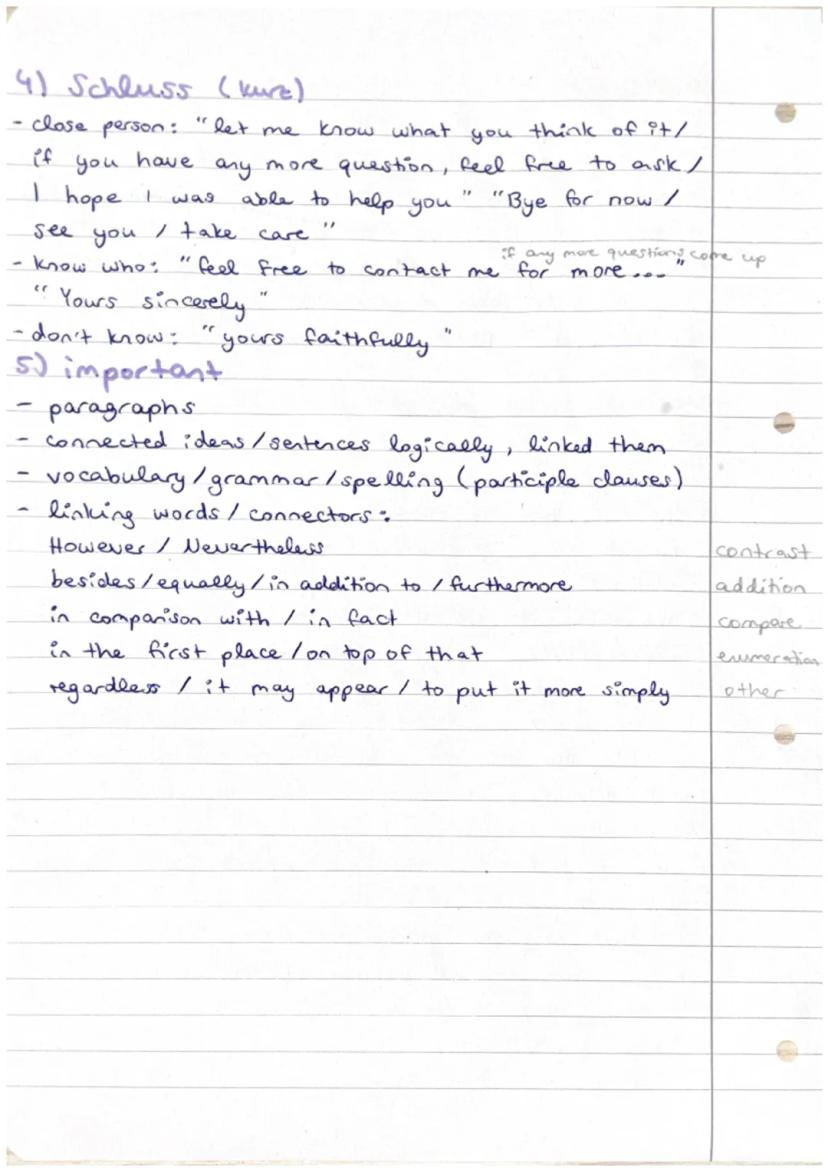 4) Schluss (kurz)
- close person: "let me know what you think of it/
if you have any more question, feel free to ask/
I hope I was able to help you" "Bye for now /
see you / take care"
if any more questions come up
- know who: "feel free to contact me for more..."
"Yours sincerely"
- don't know: "yours faithfully"
5) important
- paragraphs
- connected ideas/sentences logically, linked them
- vocabulary/grammar/spelling (participle clauses)
- linking words/connectors:
However / Nevertheless contrast
besides/equally/in addition to / furthermore addition
in comparison with / in fact compare
in the first place/on top of that enumeration
regardless / it may appear / to put it more simply other